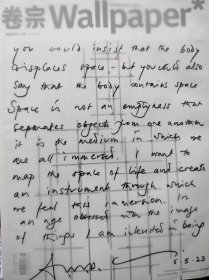 卷宗Wallpaper*
you could insist that the body
displaces space - but you could also
say that the body contains space
Space is not an emptyness that
separates objects from one another
it is the medium in which we
are all immersed. I want to
map the space of life and create
an instrument through which
we feel this immersion. In
an age obsessed with the image
of things I am interested in being
5.5.23